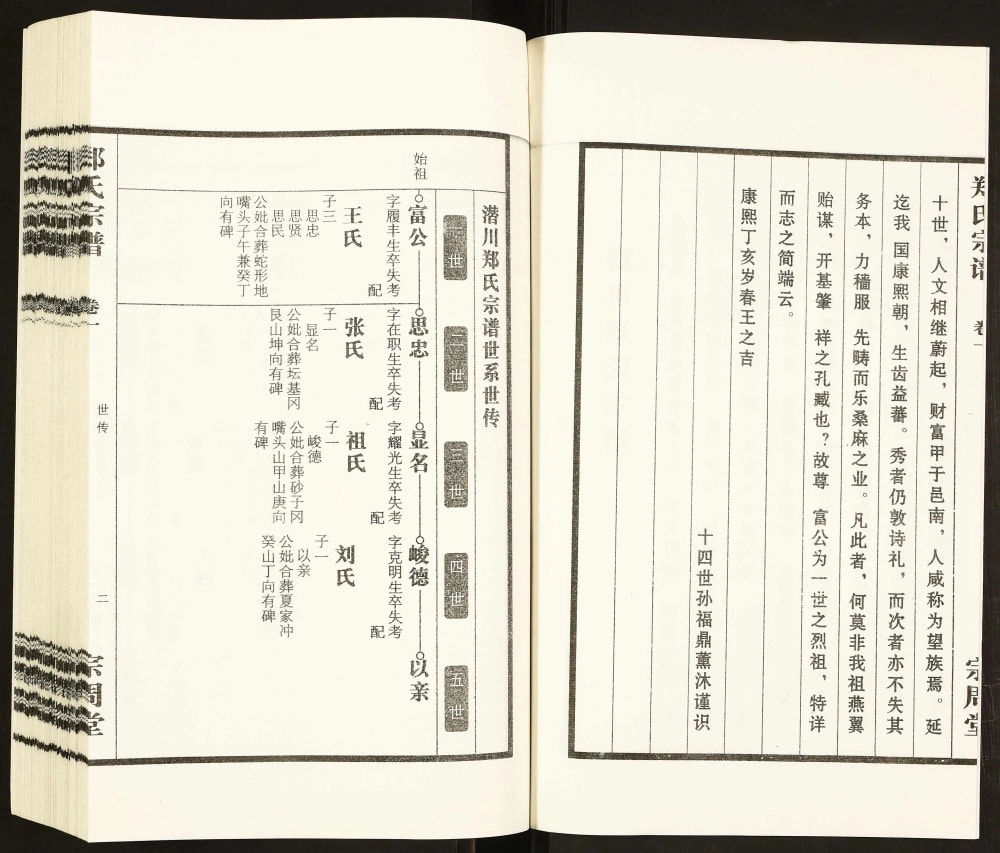 郑氏宗谱
卷一
宗周堂
十世，人文相继蔚起，财富甲于邑南，人咸称为望族焉。延
迄我 国康熙朝，生齿益蕃。秀者仍敦诗礼，而次者亦不失其
务本，力穑服 先畴而乐桑麻之业。凡此者，何莫非我祖燕翼
贻谋，开基肇 祥之孔臧也？故尊 富公为一世之烈祖，特详
而志之简端云。
康熙丁亥岁春王之吉
十四世孙福鼎薰沐谨识
潜川郑氏宗谱世系世传
一世
二世
三世
四世
五世
始祖
富公
字履丰生卒失考
配
王氏
子三
思忠
思贤
思民
公妣合葬蛇形地
嘴头子午兼癸丁
向有碑
思忠
字在职生卒失考
配
张氏
子一
显名
公妣合葬坛基冈
艮山坤向有碑
显名
字耀光生卒失考
配
祖氏
子一
峻德
公妣合葬砂子冈
嘴头山甲山庚向
有碑
峻德
字克明生卒失考
配
刘氏
子一
以亲
公妣合葬夏家冲
癸山丁向有碑
以亲
郑氏宗谱
卷一
世传
二
宗周堂